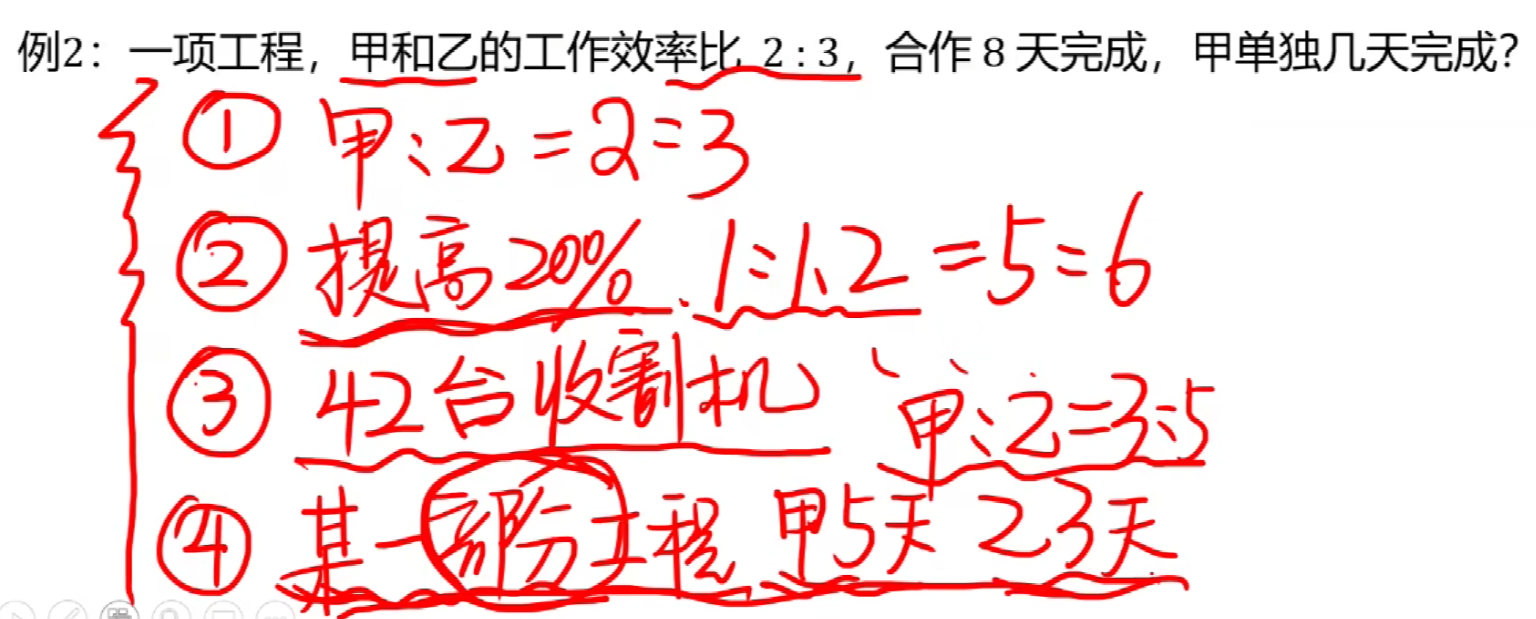 例2：一项工程，甲和乙的工作效率比 2 : 3，合作 8 天完成，甲单独几天完成？
① 甲:乙=2:3
② 提高20% 1:1.2=5:6
③ 42台收割机 甲:乙=3:5
④ 某一部分工程 甲5天 乙3天